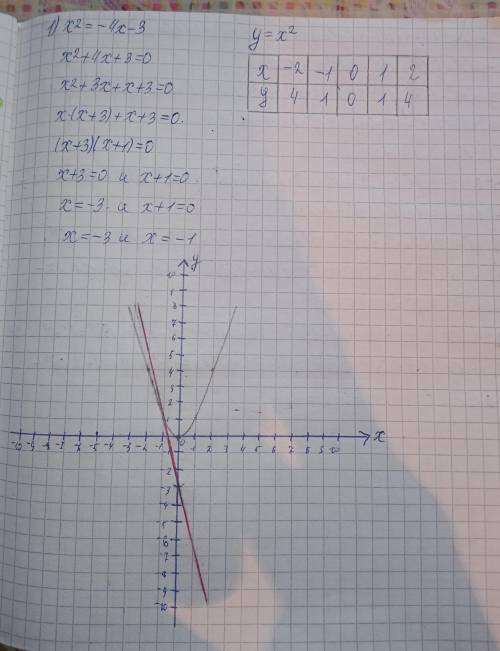 1) x² = -4x-3
x²+4x+3=0
x²+3x+x+3=0
x·(x+3)+x+3=0.
(x+3)(x+1)=0
x+3=0 и x+1=0
x=-3 и x+1=0
x=-3 и x=-1
y=x²
x -2 -1 0 1 2
y 4 1 0 1 4
y
10
9
8
7
6
5
4
3
2
-10 -9 -8 -7 -6 -5 -4 -3 -2 -1 0 1 2 3 4 5 6 7 8 9 10 x
2
-3
-4
-5
-6
-7
-8
-9
-10